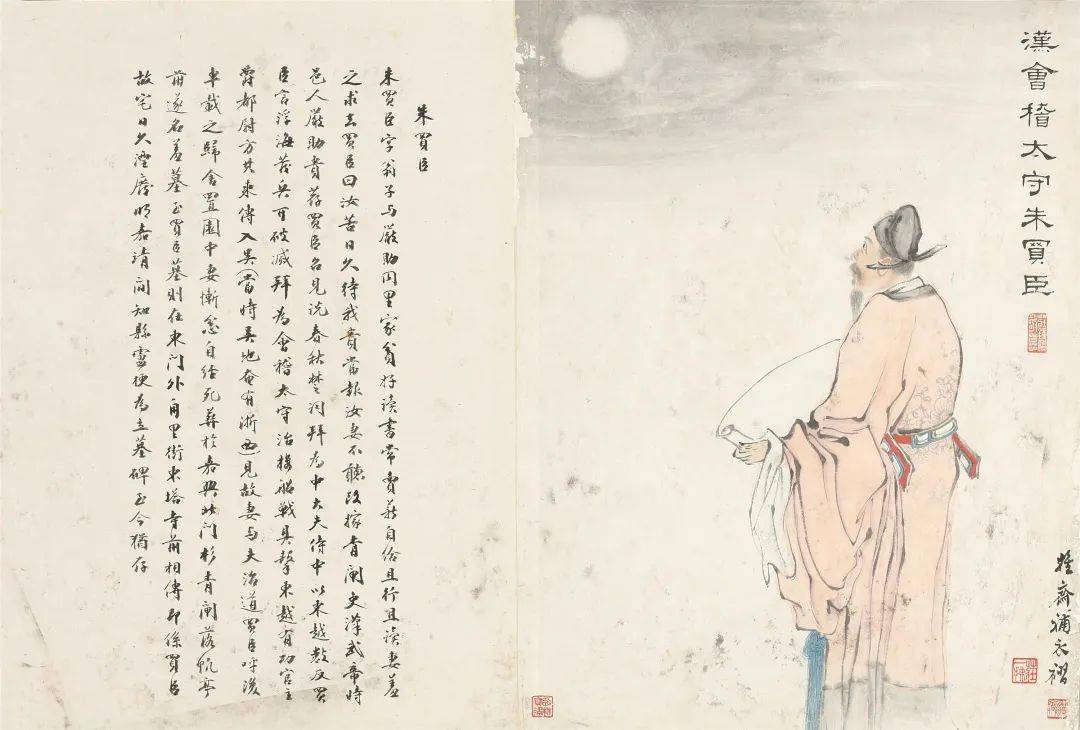 漢會稽太守朱買臣
齋補衣褶
朱買臣
朱買臣字翁子与嚴助同里家貧好讀書常賣薪自给且行且讀妻羞
之求去買臣曰汝苦日久待我貴當報汝妻不聽改嫁青閘吏漢武帝時
邑人嚴助貴荐買臣召見说春秋楚词拜為中大夫侍中以東越數反買
臣言浮海發兵可破滅拜為會稽太守治樓船戰具擊東越有功官主
爵都尉方其乘傳入吴(當時吴地奄有浙西)見故妻与夫治道買臣呼後
車載之歸舍置園中妻慚忿自经死葬於嘉興北门杉青閘落帆亭
前遂名羞墓至買臣墓則在東门外甪里街東塔寺前相傳即係買臣
故宅日久湮廢明嘉靖间知縣為立墓碑至今猶存